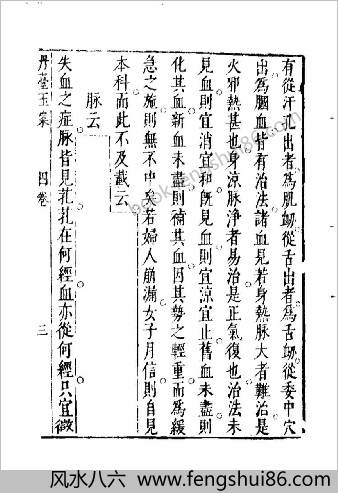 有從汗孔出者爲肌衂從舌出者爲舌衂從委中穴
出爲膕血皆有治法諸血見若身熱脉大者難治是
火邪熱甚也身涼脉淨者易治是正氣復也治法未
見血則宜消宜和旣見血則宜涼宜止舊血未盡則
化其血新血未盡則補其血因其勢之輕重而爲緩
急之施則無不中矣若婦人崩漏女子月信則自見
本科而此不及載云
脉云
失血之症脉皆見芤芤在何經血亦從何經只宜微
丹臺玉案
四卷
三
book.fengshui86.com
风水八六－www.fengshui86.com